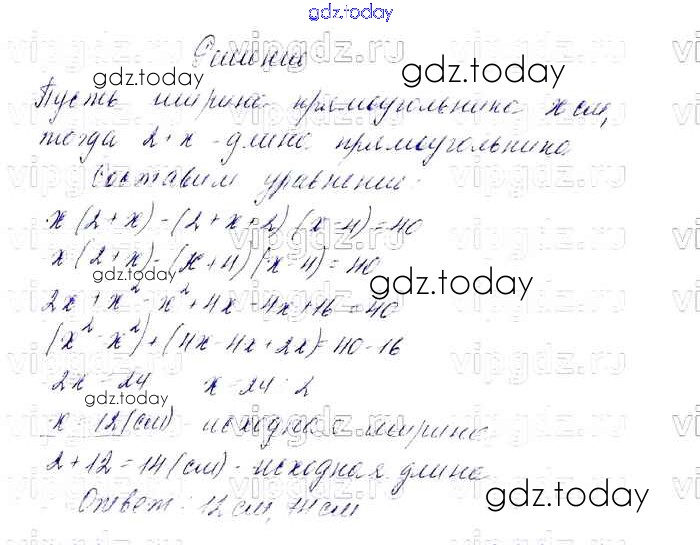 gdz.today
Решение
gdz.today
gdz.today
Пусть ширина прямоугольника x см,
тогда 2+x - длина прямоугольника
Составим уравнение:
x(2+x)-(2+x+2)(x-4)=40
x(2+x)-(x+4)(x-4)=40
gdz.today
gdz.today
2x+x²-x²+4x-4x+16=40
(x²-x²)+(4x-4x+2x)=40-16
2x=24 x=24:2
gdz.today
x=12(см) - исходная ширина
2+12=14(см) - исходная длина
gdz.today
Ответ: 12см, 14см